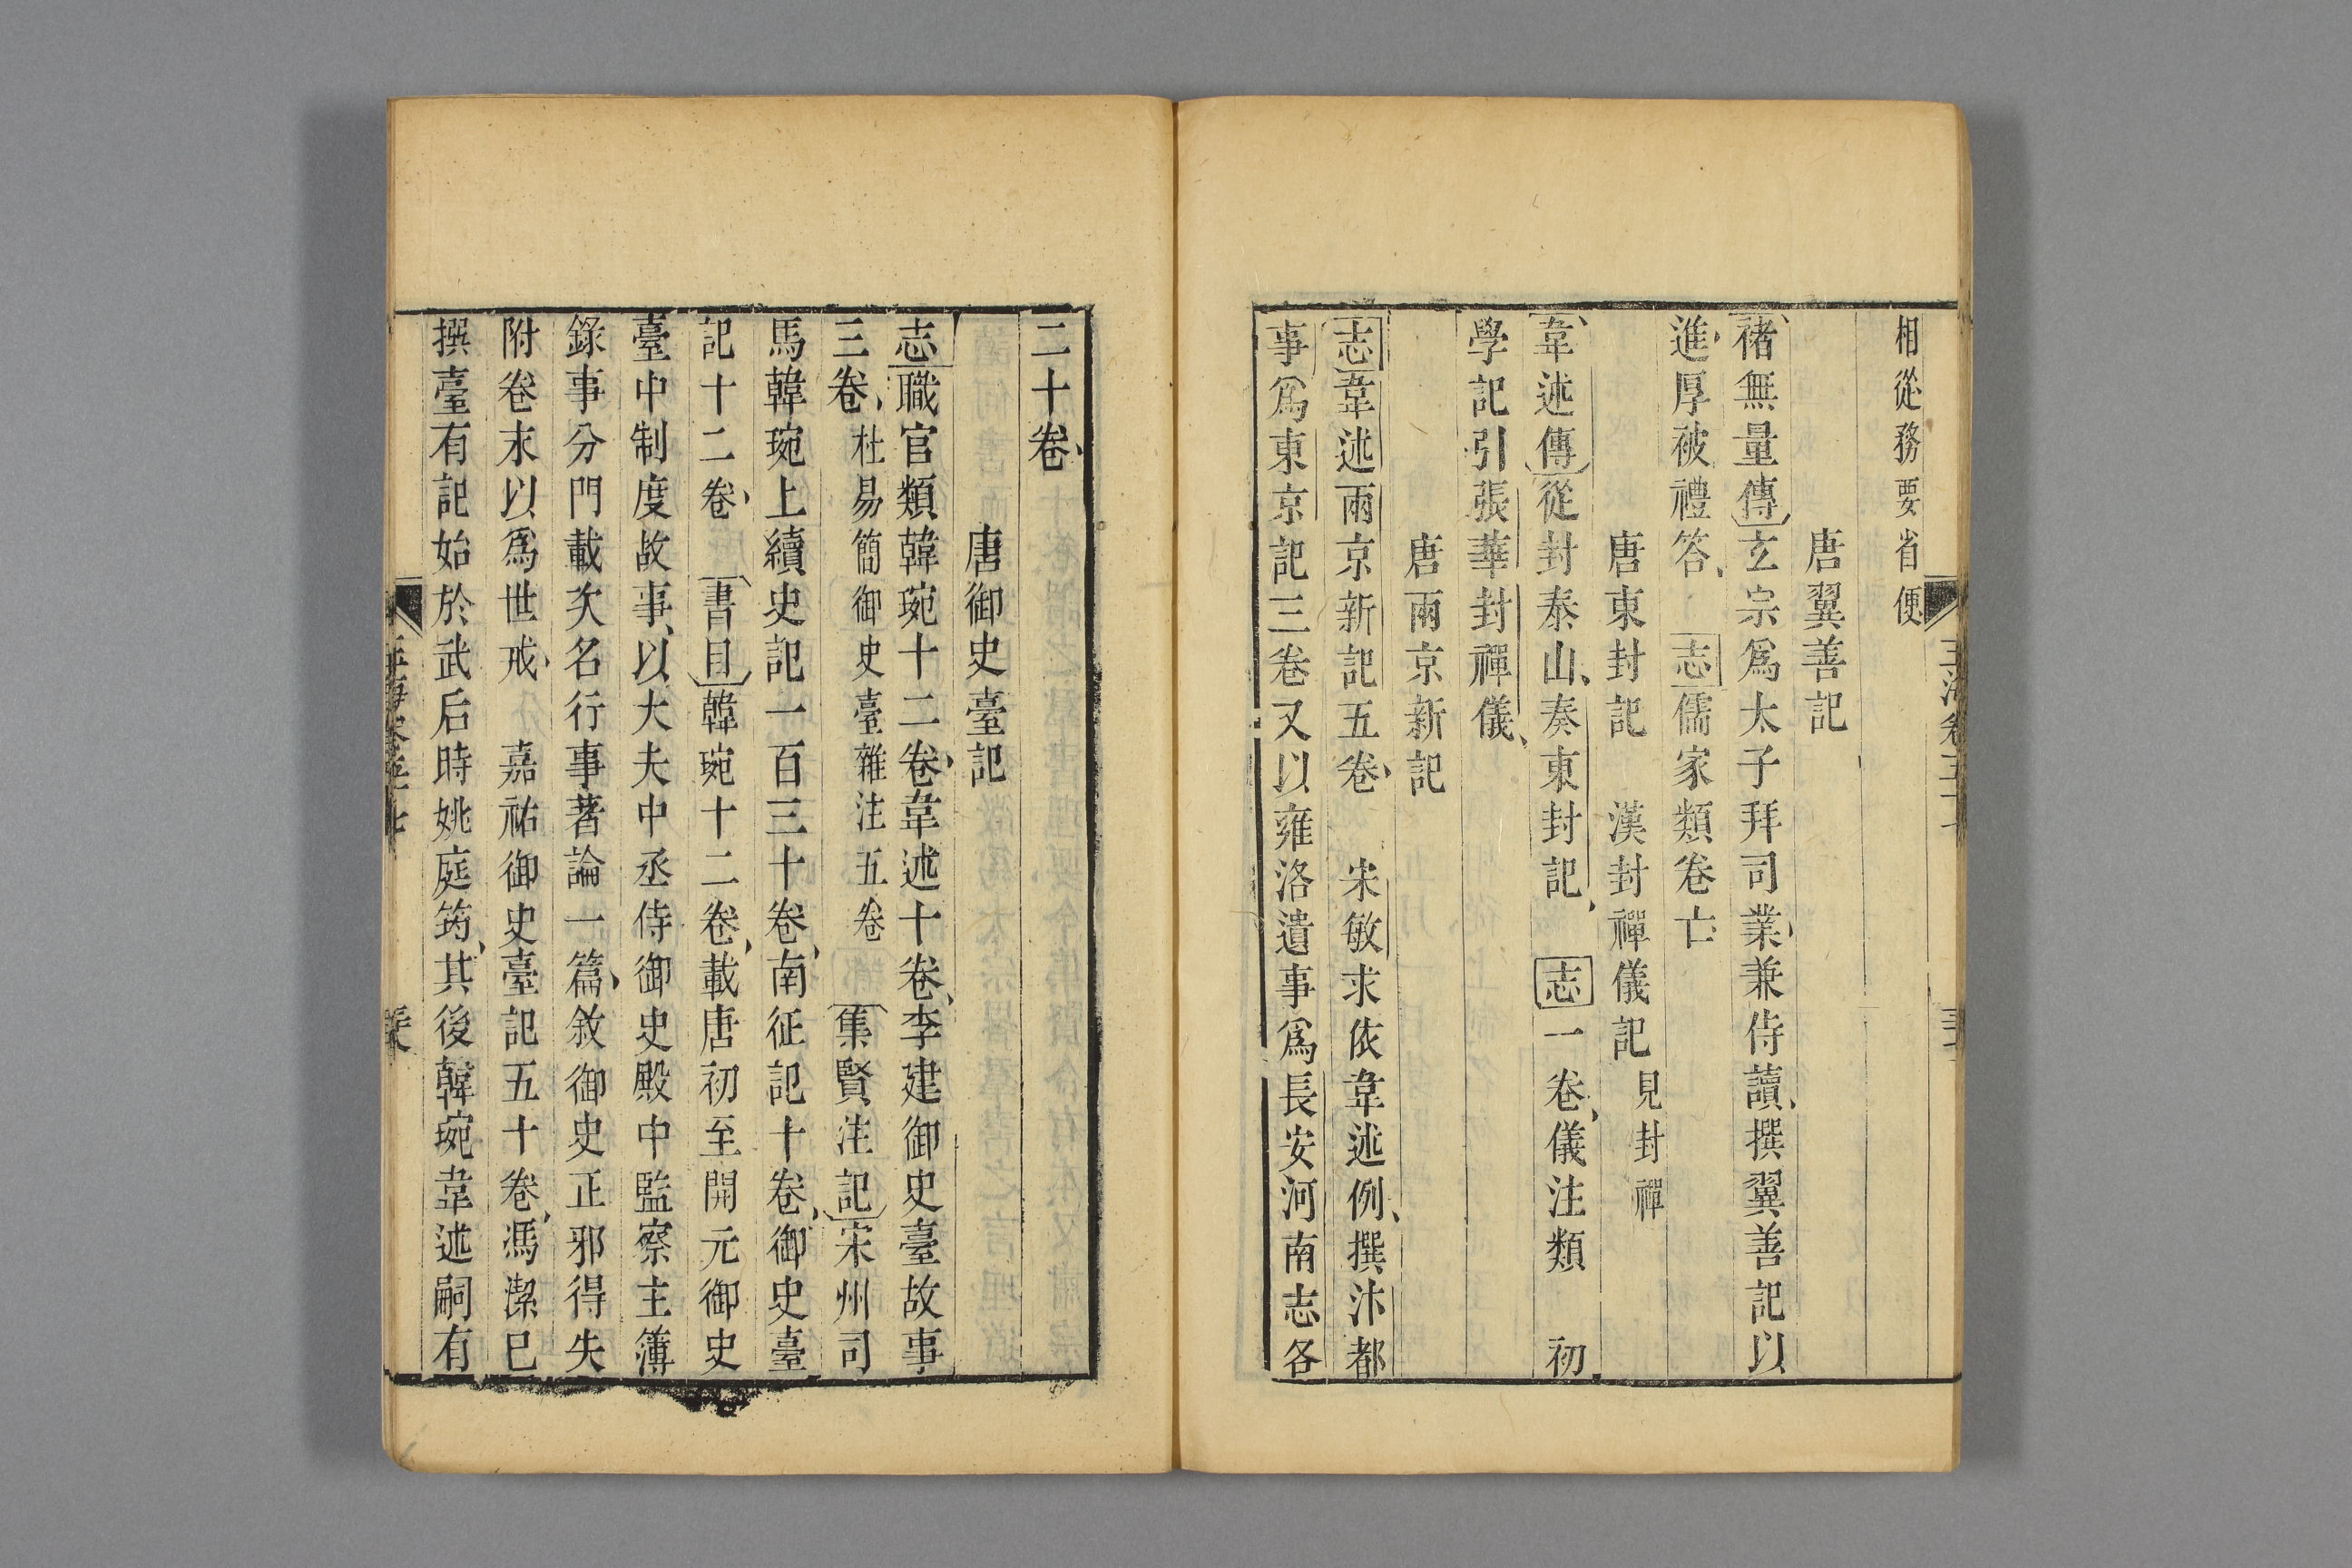 相從務要省便
唐翼善記
褚無量傳玄宗爲太子拜司業兼侍讀撰翼善記以
進厚被禮答 志儒家類卷亡
唐東封記 漢封禪儀記見封禪
韋述傳從封泰山奏東封記 志一卷儀注類 初
學記引張華封禪儀
唐兩京新記
志韋述兩京新記五卷 宋敏求依韋述例撰汴都
事爲東京記三卷又以雍洛遺事爲長安河南志各
二十卷
唐御史臺記
志職官類韓琬十二卷韋述十卷李建御史臺故事
三卷杜易簡御史臺雜注五卷 集賢注記宋州司
馬韓琬上續史記一百三十卷南征記十卷御史臺
記十二卷 書目韓琬十二卷載唐初至開元御史
臺中制度故事以大夫中丞侍御史殿中監察主簿
錄事分門載次名行事著論一篇敘御史正邪得失
附卷末以爲世戒 嘉祐御史臺記五十卷馮潔已
撰臺有記始於武后時姚庭筠其後韓琬韋述嗣有